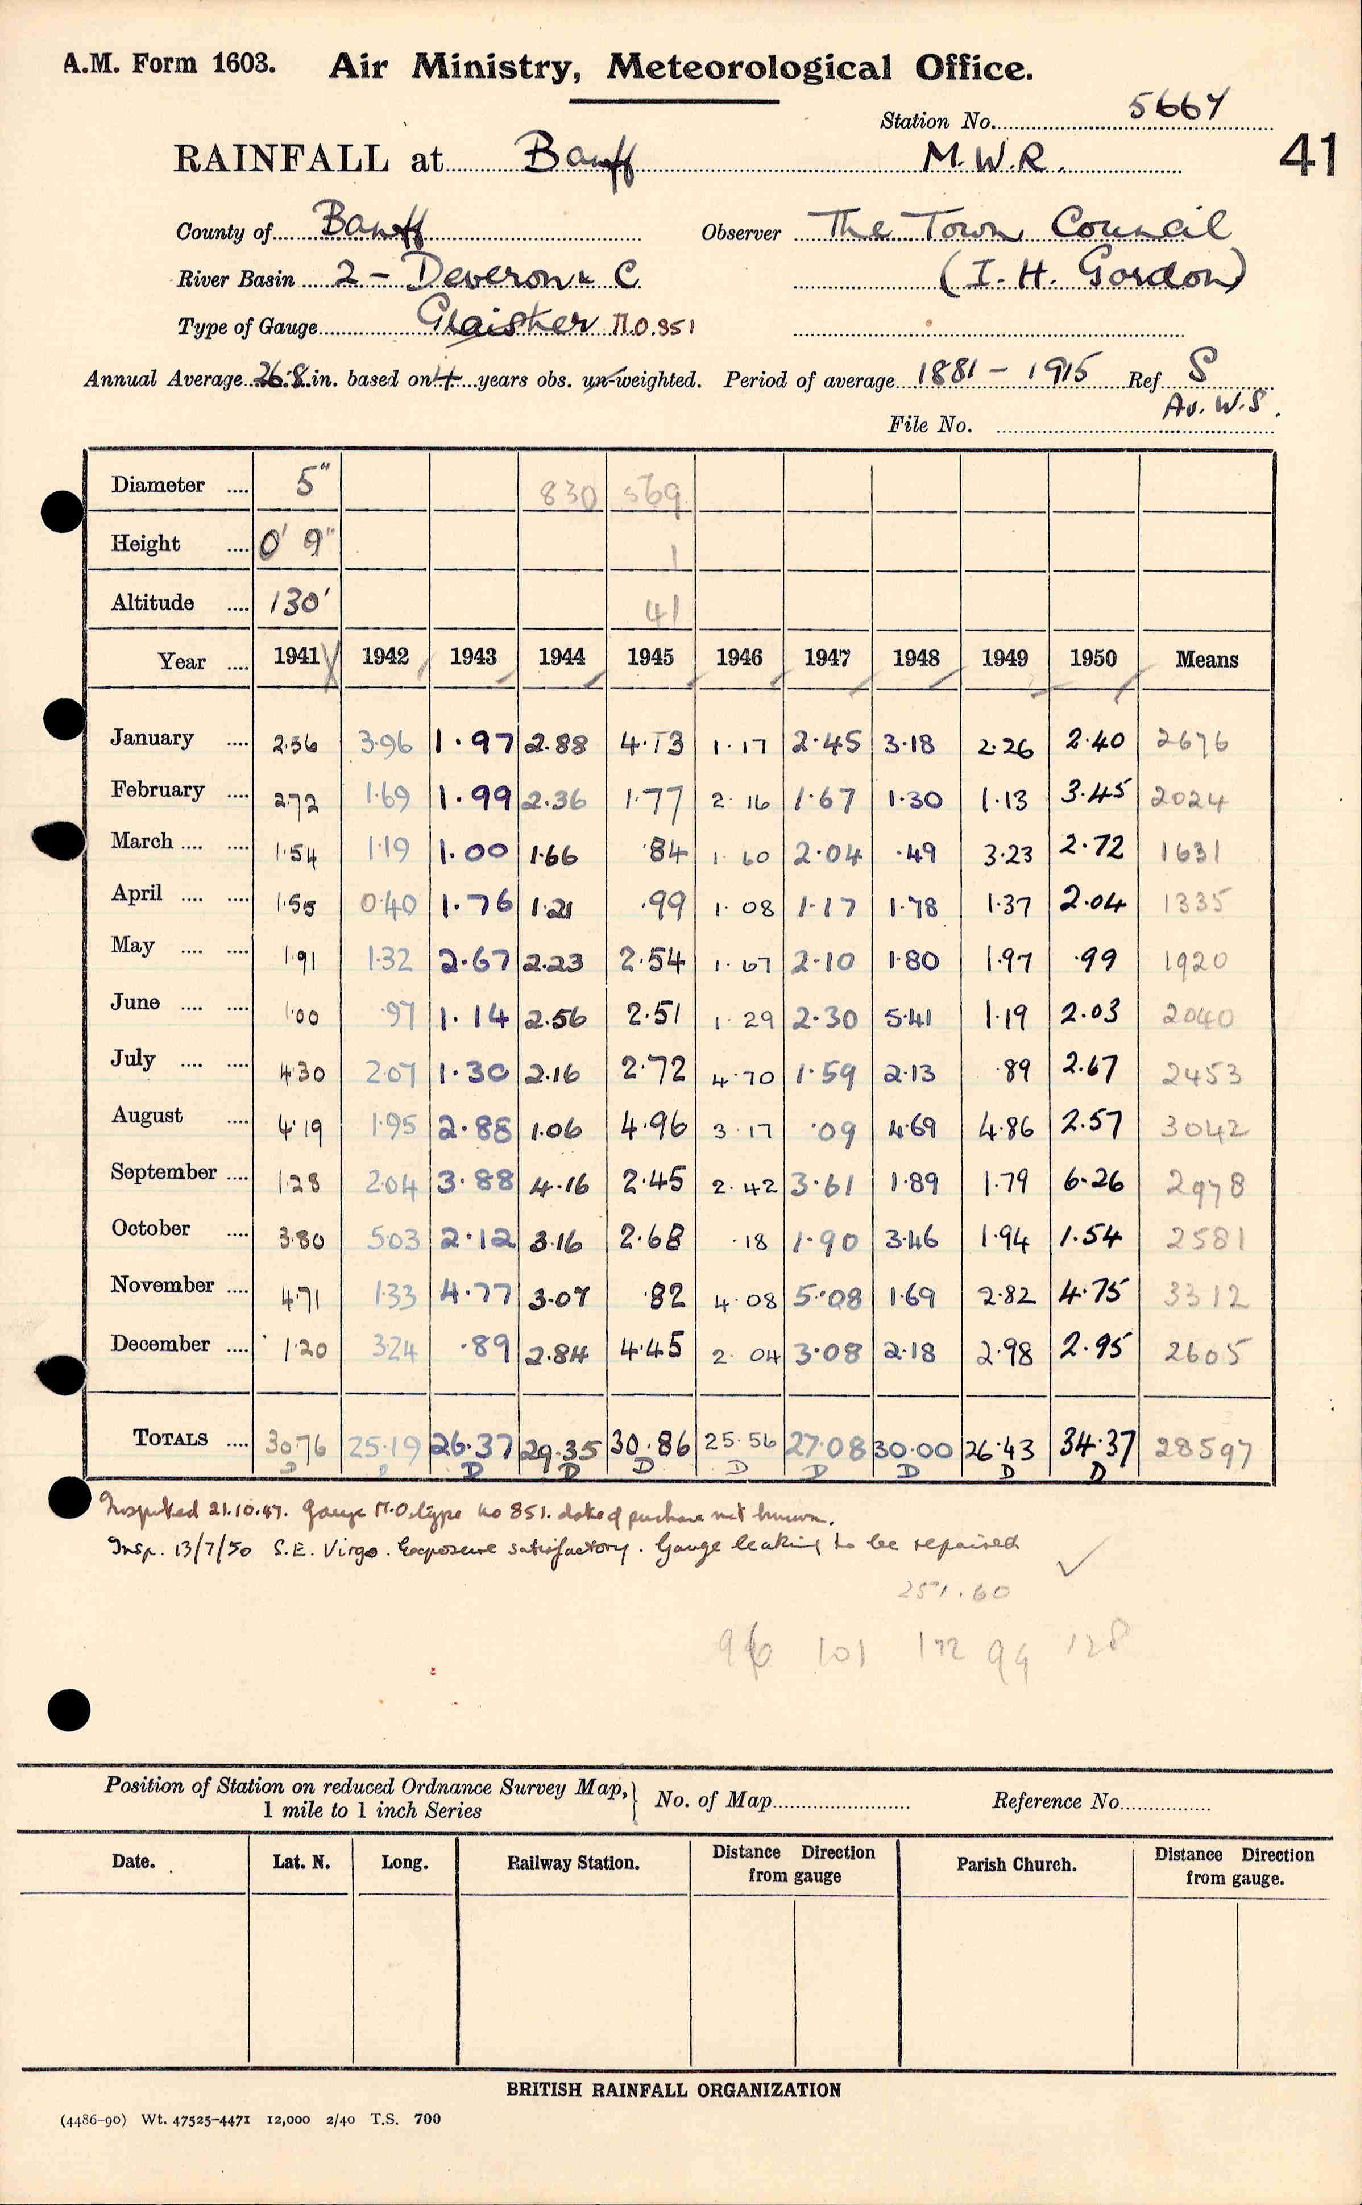 A.M. Form 1603. Air Ministry, Meteorological Office.
Station No. 5667
RAINFALL at Banff M.W.R. 41
County of Banff Observer The Town Council
River Basin 2 - Deveron & C (I. H. Gordon)
Type of Gauge Glaisher M.O. 851
Annual Average 26.8 in. based on years obs. un-weighted. Period of average 1881 - 1915 Ref S
Av. W.S.
File No.
Diameter .... 5" 830 569
Height .... 0' 9" 1
Altitude .... 130' 41
Year .... 1941 1942 1943 1944 1945 1946 1947 1948 1949 1950 Means
January .... 2.36 3.96 1.97 2.88 4.13 1.17 2.45 3.18 2.26 2.40 2676
February .... 2.72 1.69 1.99 2.36 1.77 2.16 1.67 1.30 1.13 3.45 2024
March .... .... 1.54 1.19 1.00 1.66 .84 1.60 2.04 .49 3.23 2.72 1631
April .... .... 1.55 0.40 1.76 1.21 .99 1.08 1.17 1.78 1.37 2.04 1335
May .... .... 1.91 1.32 2.67 2.23 2.54 1.67 2.10 1.80 1.97 .99 1920
June .... .... 1.00 .97 1.14 2.56 2.51 1.29 2.30 5.41 1.19 2.03 2040
July .... .... 4.30 2.07 1.30 2.16 2.72 4.70 1.59 2.13 .89 2.67 2453
August .... 4.19 1.95 2.88 1.06 4.96 3.17 .09 4.69 4.86 2.57 3042
September .... 1.28 2.04 3.88 4.16 2.45 2.42 3.61 1.89 1.79 6.26 2978
October .... 3.80 5.03 2.12 3.16 2.68 .18 1.90 3.46 1.94 1.54 2581
November .... 4.71 1.33 4.77 3.07 .82 4.08 5.08 1.69 2.82 4.75 3312
December .... 1.20 3.24 .89 2.84 4.45 2.04 3.08 2.18 2.98 2.95 2605
TOTALS .... 30.76 25.19 26.37 29.35 30.86 25.56 27.08 30.00 26.43 34.37 28597
D D D D D D D D D D
Inspected 21.10.47. Gauge M.O. type No 851. date of purchase not known.
Insp. 13/7/50 S.E. Virgo. Exposure satisfactory. Gauge leaking to be repaired
251.60
96 101 112 99 128
Position of Station on reduced Ordnance Survey Map, No. of Map Reference No.
1 mile to 1 inch Series
Date. Lat. N. Long. Railway Station. Distance Direction from gauge Parish Church. Distance Direction from gauge.
BRITISH RAINFALL ORGANIZATION
(4486-90) Wt. 47525-4471 12,000 2/40 T.S. 700